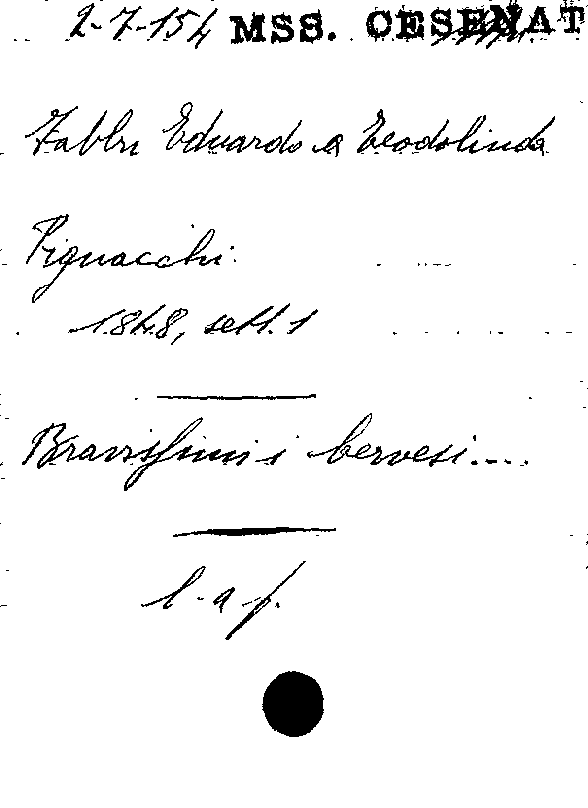 2-7-154 MSS. CESENAT
Fabbri Eduardo a Teodolinda
Pignacchi.
1848, sett. 1
Bravissimi i bervesi....
l. a f.